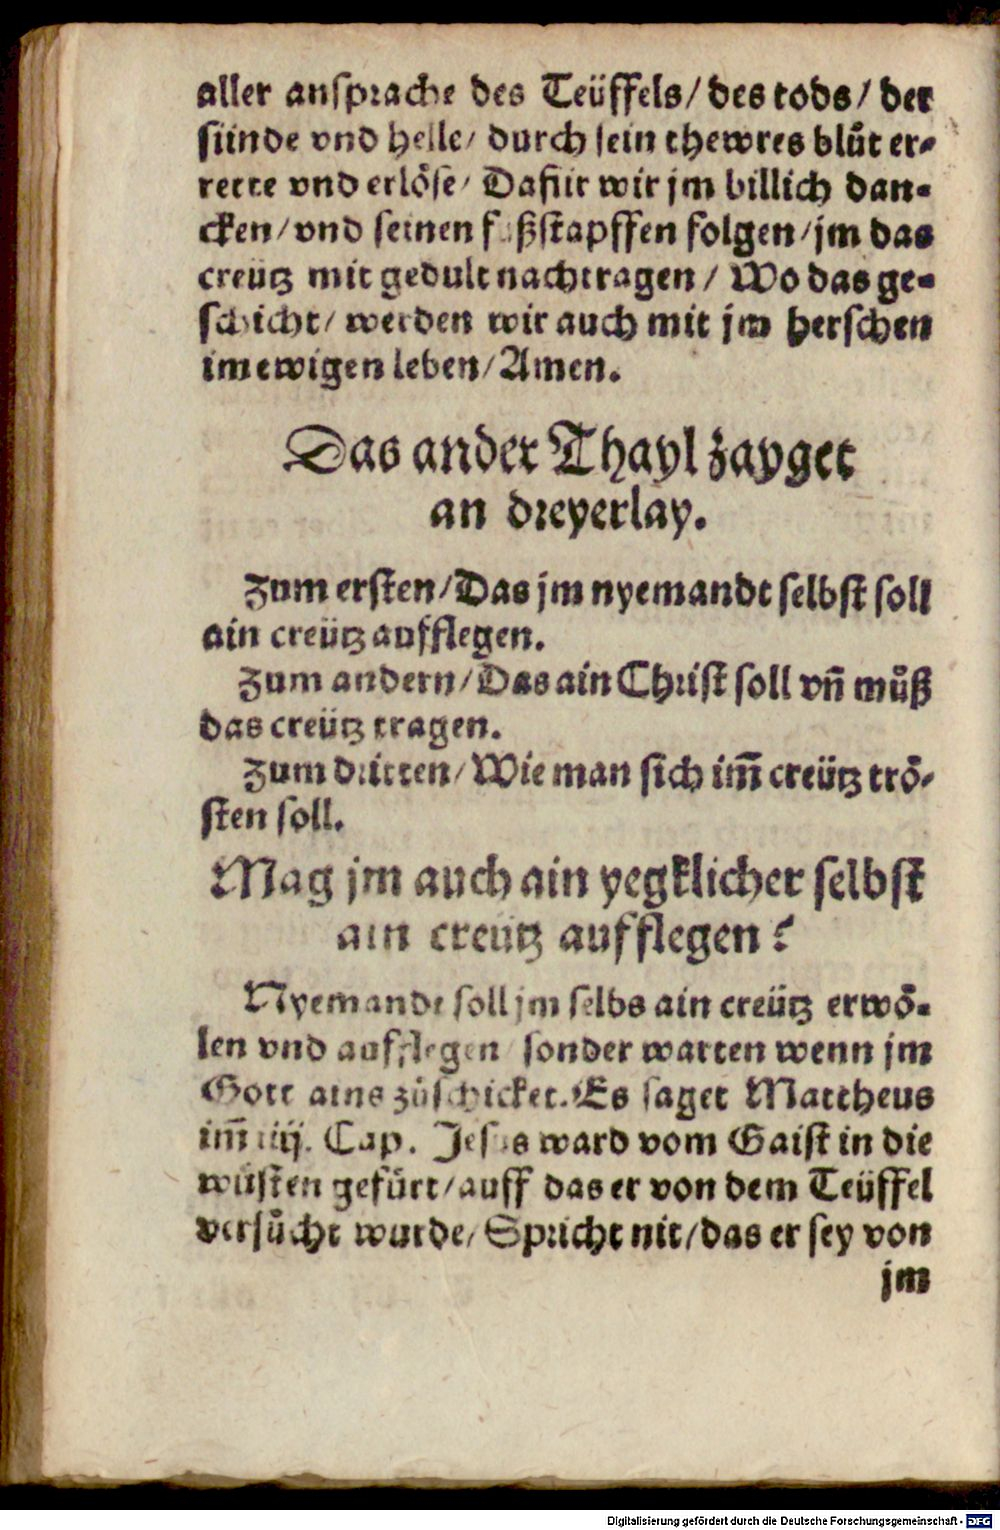 aller ansprache des Teüffels/ des tods/ der
sünde vnd helle/ durch sein thewres blůt er-
rette vnd erlöse/ Dafür wir jm billich dan-
cken/ vnd seinen fůßstapffen folgen/ jm das
creütz mit gedult nachtragen/ Wo das ge-
schicht/ werden wir auch mit jm herschen
im ewigen leben/ Amen.
Das ander Thayl zayget
an dreyerlay.
Zum ersten/ Das jm nyemandt selbst soll
ain creütz aufflegen.
Zum andern/ Das ain Christ soll vñ můß
das creütz tragen.
Zum dritten/ Wie man sich im̃ creütz trö-
sten soll.
Mag jm auch ain yegklicher selbst
ain creütz aufflegen?
Nyemandt soll jm selbs ain creütz erwö-
len vnd aufflegen/ sonder warten wenn jm
Gott ains zůschicket. Es saget Mattheus
im̃ iiij. Cap. Jesus ward vom Gaist in die
wüsten gefürt/ auff das er von dem Teüffel
versůcht wurde/ Spricht nit/ das er sey von
jm
Digitalisierung gefördert durch die Deutsche Forschungsgemeinschaft - DFG